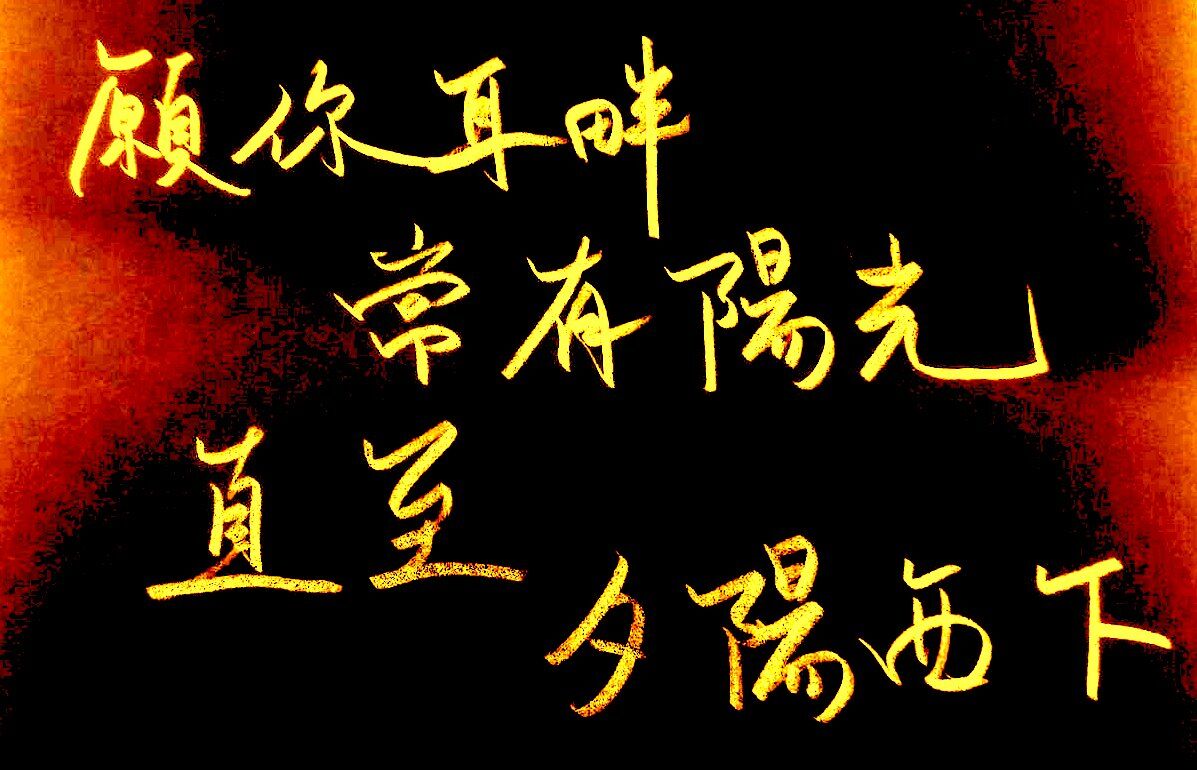 願你耳畔
常有陽光
直至
夕陽西下